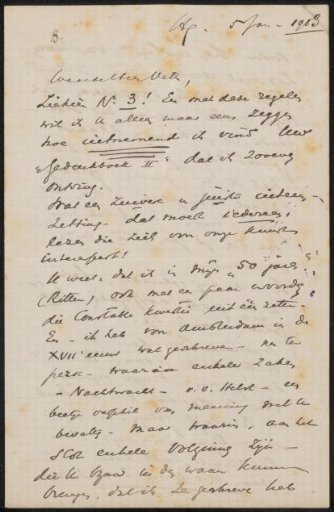 B
A. 5 Jan - 1903
Waarde Heer Veth,
Ziehier No. 3! En met deze regelen
wil ik U alleen maar even zeggen
hoe uitnemend ik vind Uw
"Gedenkboek II" dat ik zooeven
ontving.
Wat een zuivere en juiste uiteen-
zetting - dat moet iedereen
lezen die zich voor onze kunst
interesseert!
U weet, dat ik in mijn "50 jaar"
ook met een paar woorden
die Constable kwestie uiteenzette.
En - ik heb von Amsterdam in de
XVIIe eeuw wat geschreven - nu ter
perse - waarin enkele zaken
- Nachtwacht - v. d. Helst - een
beetje van meening met U
maar waarin, aan het
slot enkele volzinnen zijn -
die U in de war kunnen
brengen, dat ik ze geschreven heb